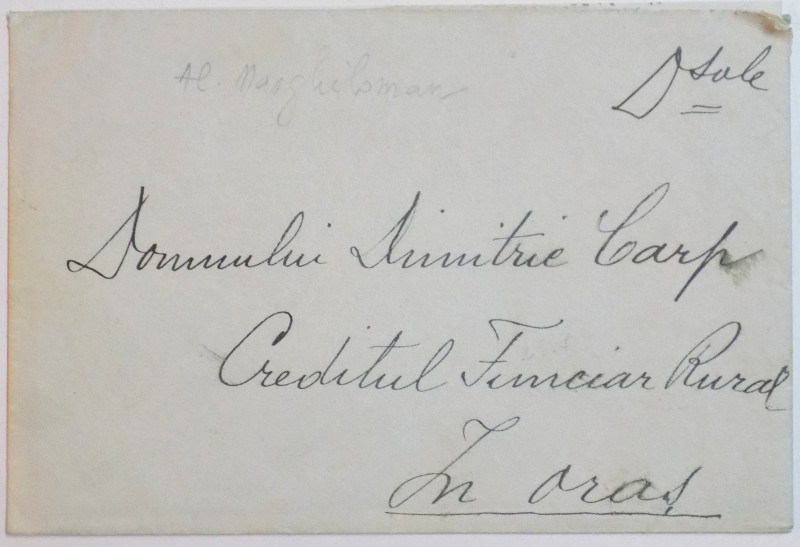 Al. Marghiloman
Dsale
Domnului Dimitrie Carp
Creditul Funciar Rural
In oraș